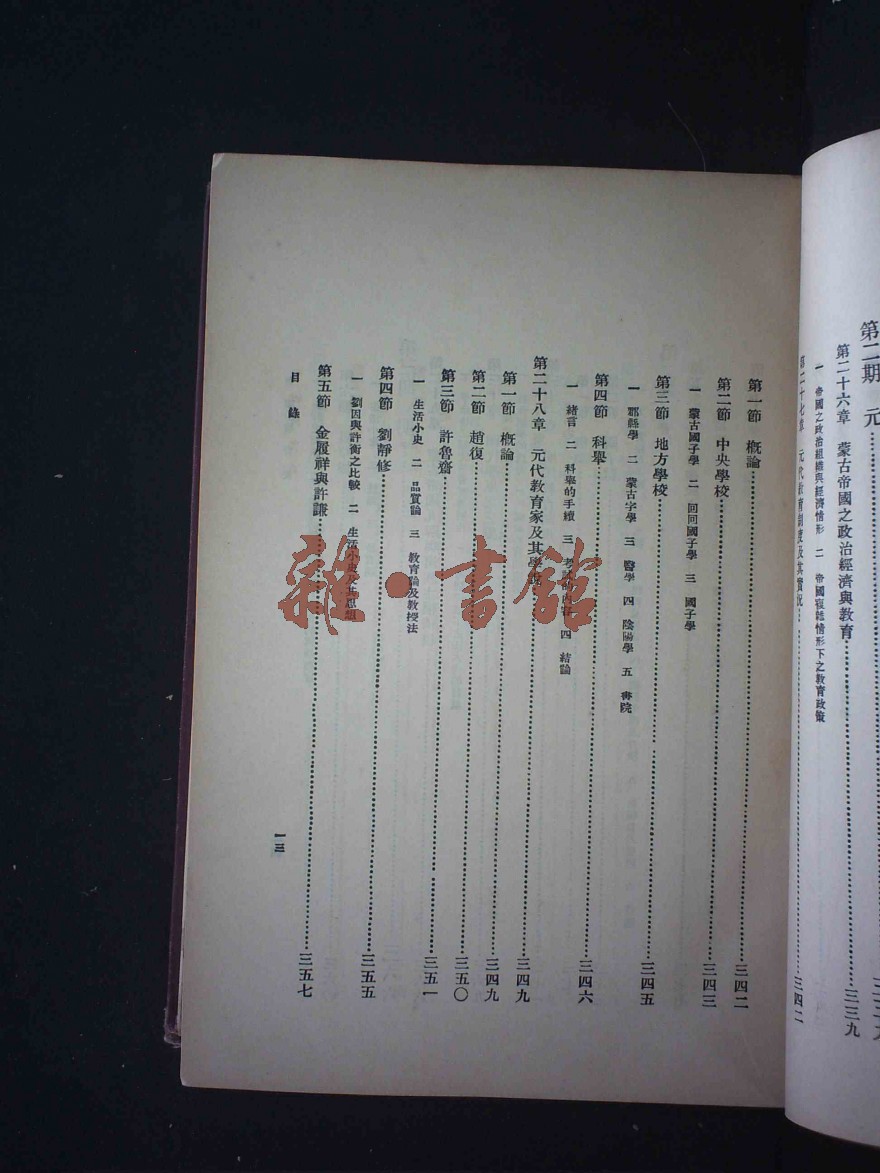 第二期 元
第二十六章 蒙古帝國之政治經濟與教育……三三九
一 帝國之政治組織與經濟情形 二 帝國複雜情形下之教育政策
第二十七章 元代教育制度及其實況……三四二
第一節 概論……三四二
第二節 中央學校……三四三
一 蒙古國子學 二 回回國子學 三 國子學
第三節 地方學校……三四五
一 郡縣學 二 蒙古字學 三 醫學 四 陰陽學 五 書院
第四節 科舉……三四六
一 緒言 二 科舉的手續 三 考試的內容 四 結論
第二十八章 元代教育家及其學說……三四九
第一節 概論……三四九
第二節 趙復……三五〇
第三節 許魯齋……三五一
一 生活小史 二 品質論 三 教育論及教授法
第四節 劉靜修……三五五
一 劉因與許衡之比較 二 生活小史及其思想
第五節 金履祥與許謙……三五七
目錄
一三
雜·書館